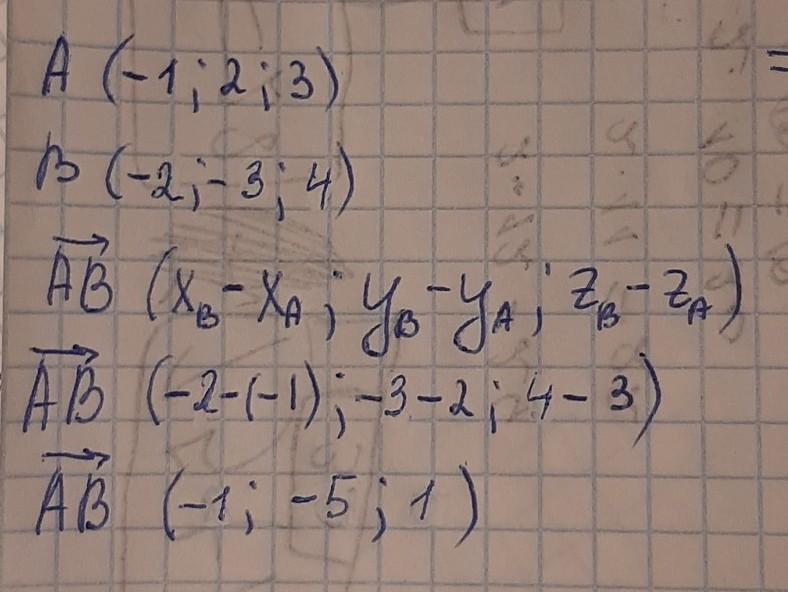 A (-1; 2; 3)
B (-2; -3; 4)
\overrightarrow{AB} (x_B - x_A; y_B - y_A; z_B - z_A)
\overrightarrow{AB} (-2-(-1); -3-2; 4-3)
\overrightarrow{AB} (-1; -5; 1)
=